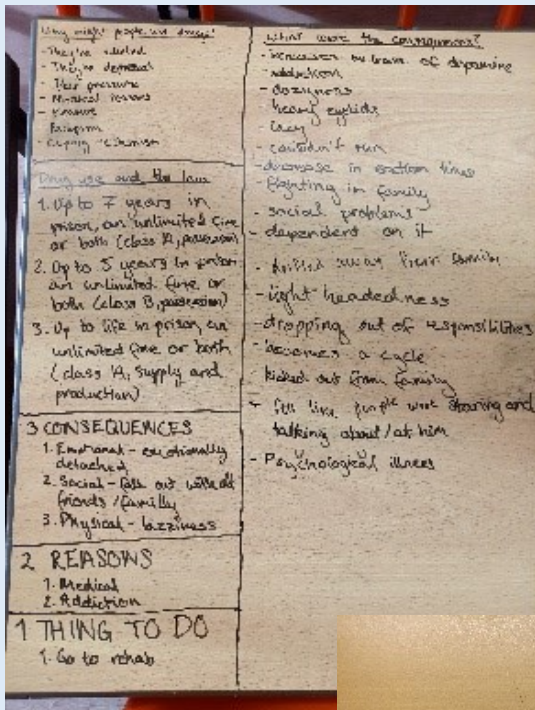 Why might people use drugs?
- They're addicted
- They're depressed
- Peer pressure
- Medical reasons
- Pleasure
- Coping mechanism
Drug use and the law
1. Up to 7 years in
prison, an unlimited fine
or both (class A, possession)
2. Up to 5 years in prison
an unlimited fine or
both (class B, possession)
3. Up to life in prison, an
unlimited fine or both
(class A, supply and
production)
3 CONSEQUENCES
1. Emotional - emotionally
detached
2. Social - fall out with
friends / familly
3. Physical - lazziness
2 REASONS
1. Medical
2. Addiction
1 THING TO DO
1. Go to rehab
What were the consequences?
- increases of dopamine
- addiction
- heavy eyelids
- lazy
- couldn't run
- decrease in reaction times
- fighting in family
- social problems
- dependent on it
- drifted away from family
- light headedness
- dropping out of responsibilities
- becomes a cycle
- kicked out from family
- felt like people were staring and
talking about/at him
- Psychological illness